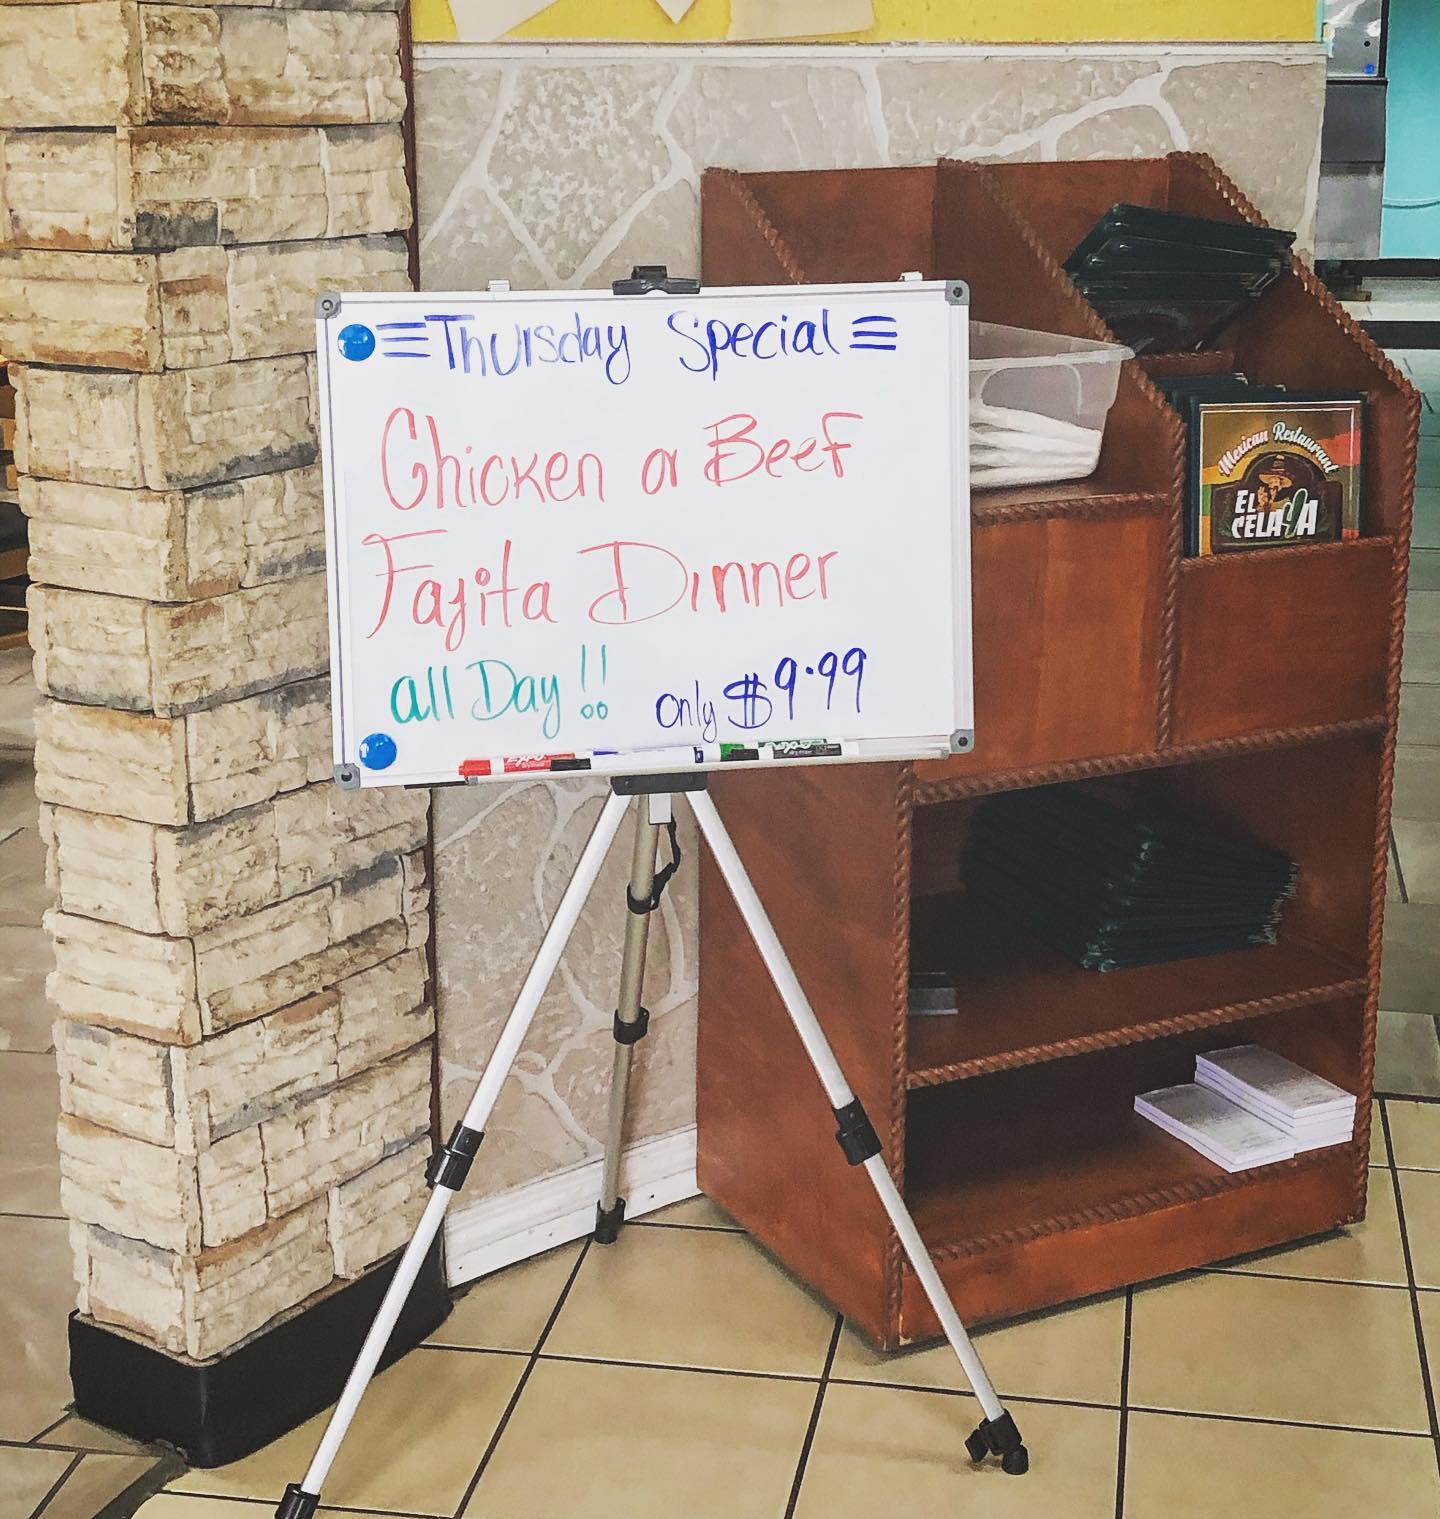 Thursday Special
Chicken or Beef
Fajita Dinner
all Day!! only $9.99
EXPO
Mexican Restaurant
EL
CELAYA